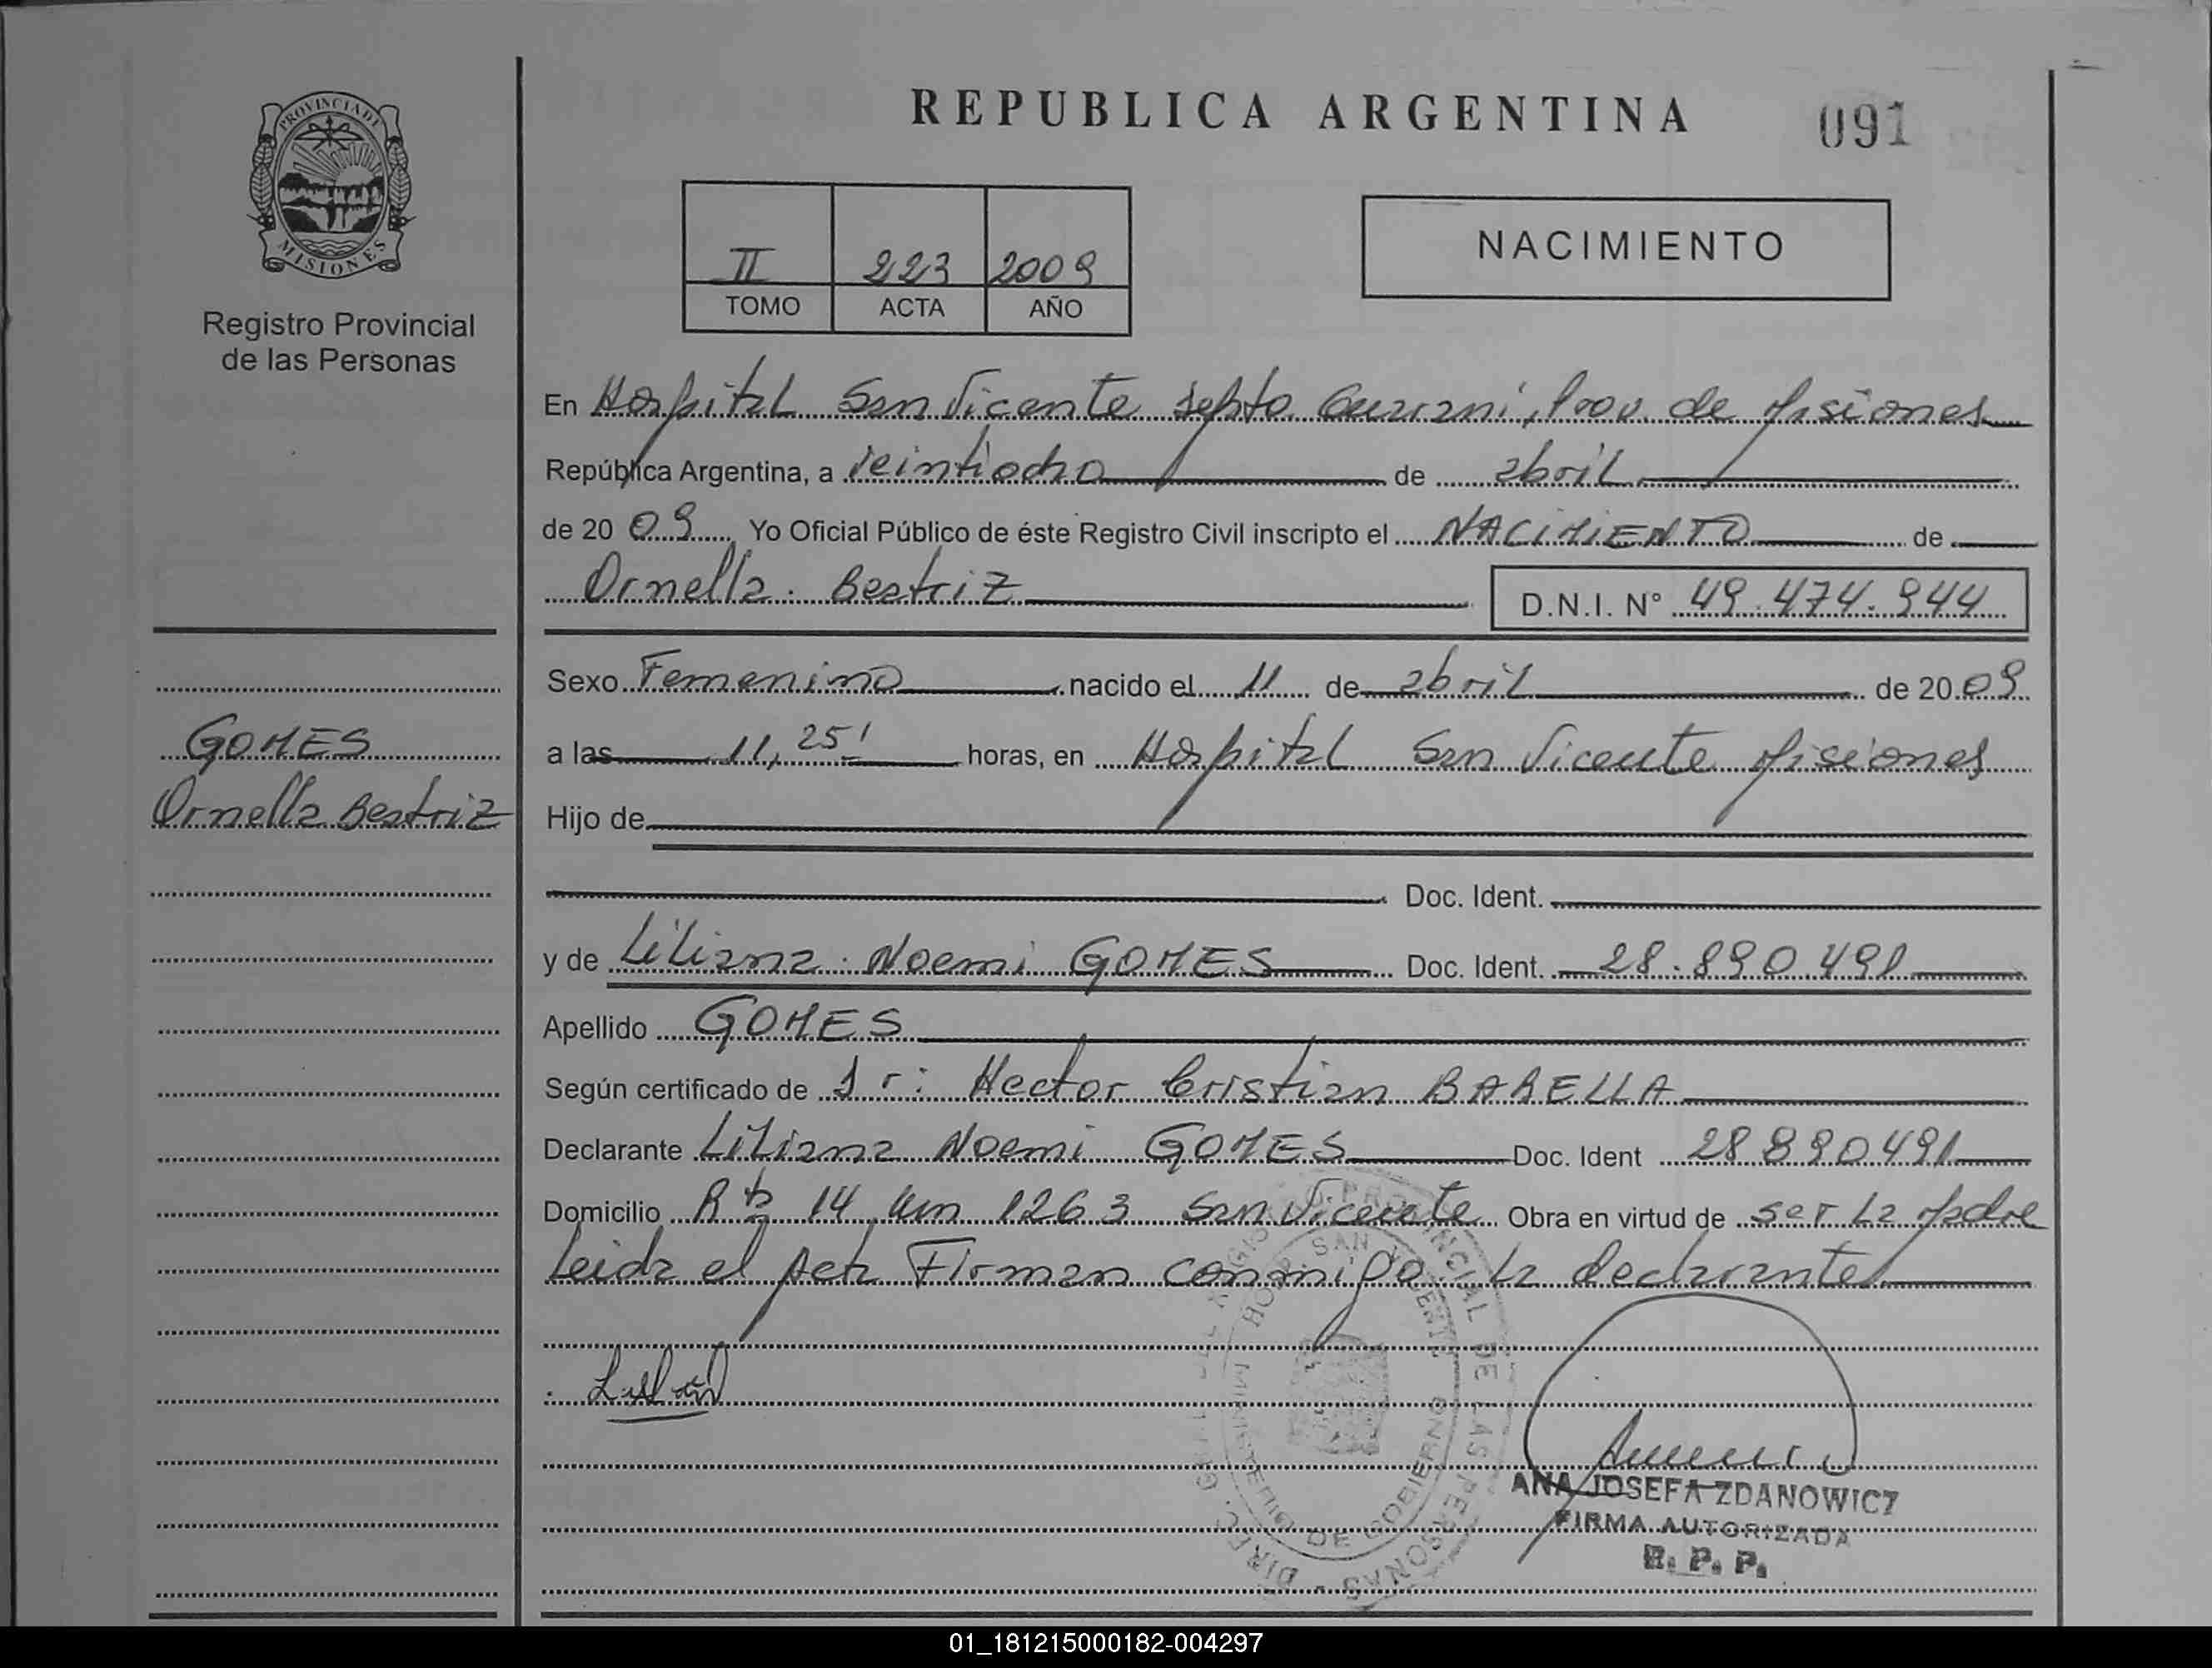 REPUBLICA ARGENTINA
091
PROVINCIA DE
MISIONES
Registro Provincial
de las Personas
II 223 2009
TOMO ACTA AÑO
NACIMIENTO
En Hospital San Vicente Depto Guarani, Prov. de Misiones
República Argentina, a Veintiocho de abril
de 20 09 Yo Oficial Público de éste Registro Civil inscripto el NACIMIENTO de
Ornella Beatriz
D.N.I. N° 49.474.944
Sexo Femenino nacido el 11 de abril de 20 09
GOMES
a las 11,25' horas, en Hospital San Vicente Misiones
Ornella Beatriz
Hijo de
Doc. Ident.
y de Liliana Noemi GOMES Doc. Ident. 28.890.491
Apellido GOMES
Según certificado de Dr: Hector Cristian BARELLA
Declarante Liliana Noemi GOMES Doc. Ident 28890491
Domicilio Rta 14 km 1263 San Vicente Obra en virtud de ser la Madre
Leida el Acta Firman conmigo La declarante
DIREC. GRAL. REGISTRO PROVINCIAL DE LAS PERSONAS
HOSP. SAN VICENTE
MINISTERIO DE GOBIERNO
ANA JOSEFA ZDANOWICZ
FIRMA AUTORIZADA
R. P. P.
01_181215000182-004297